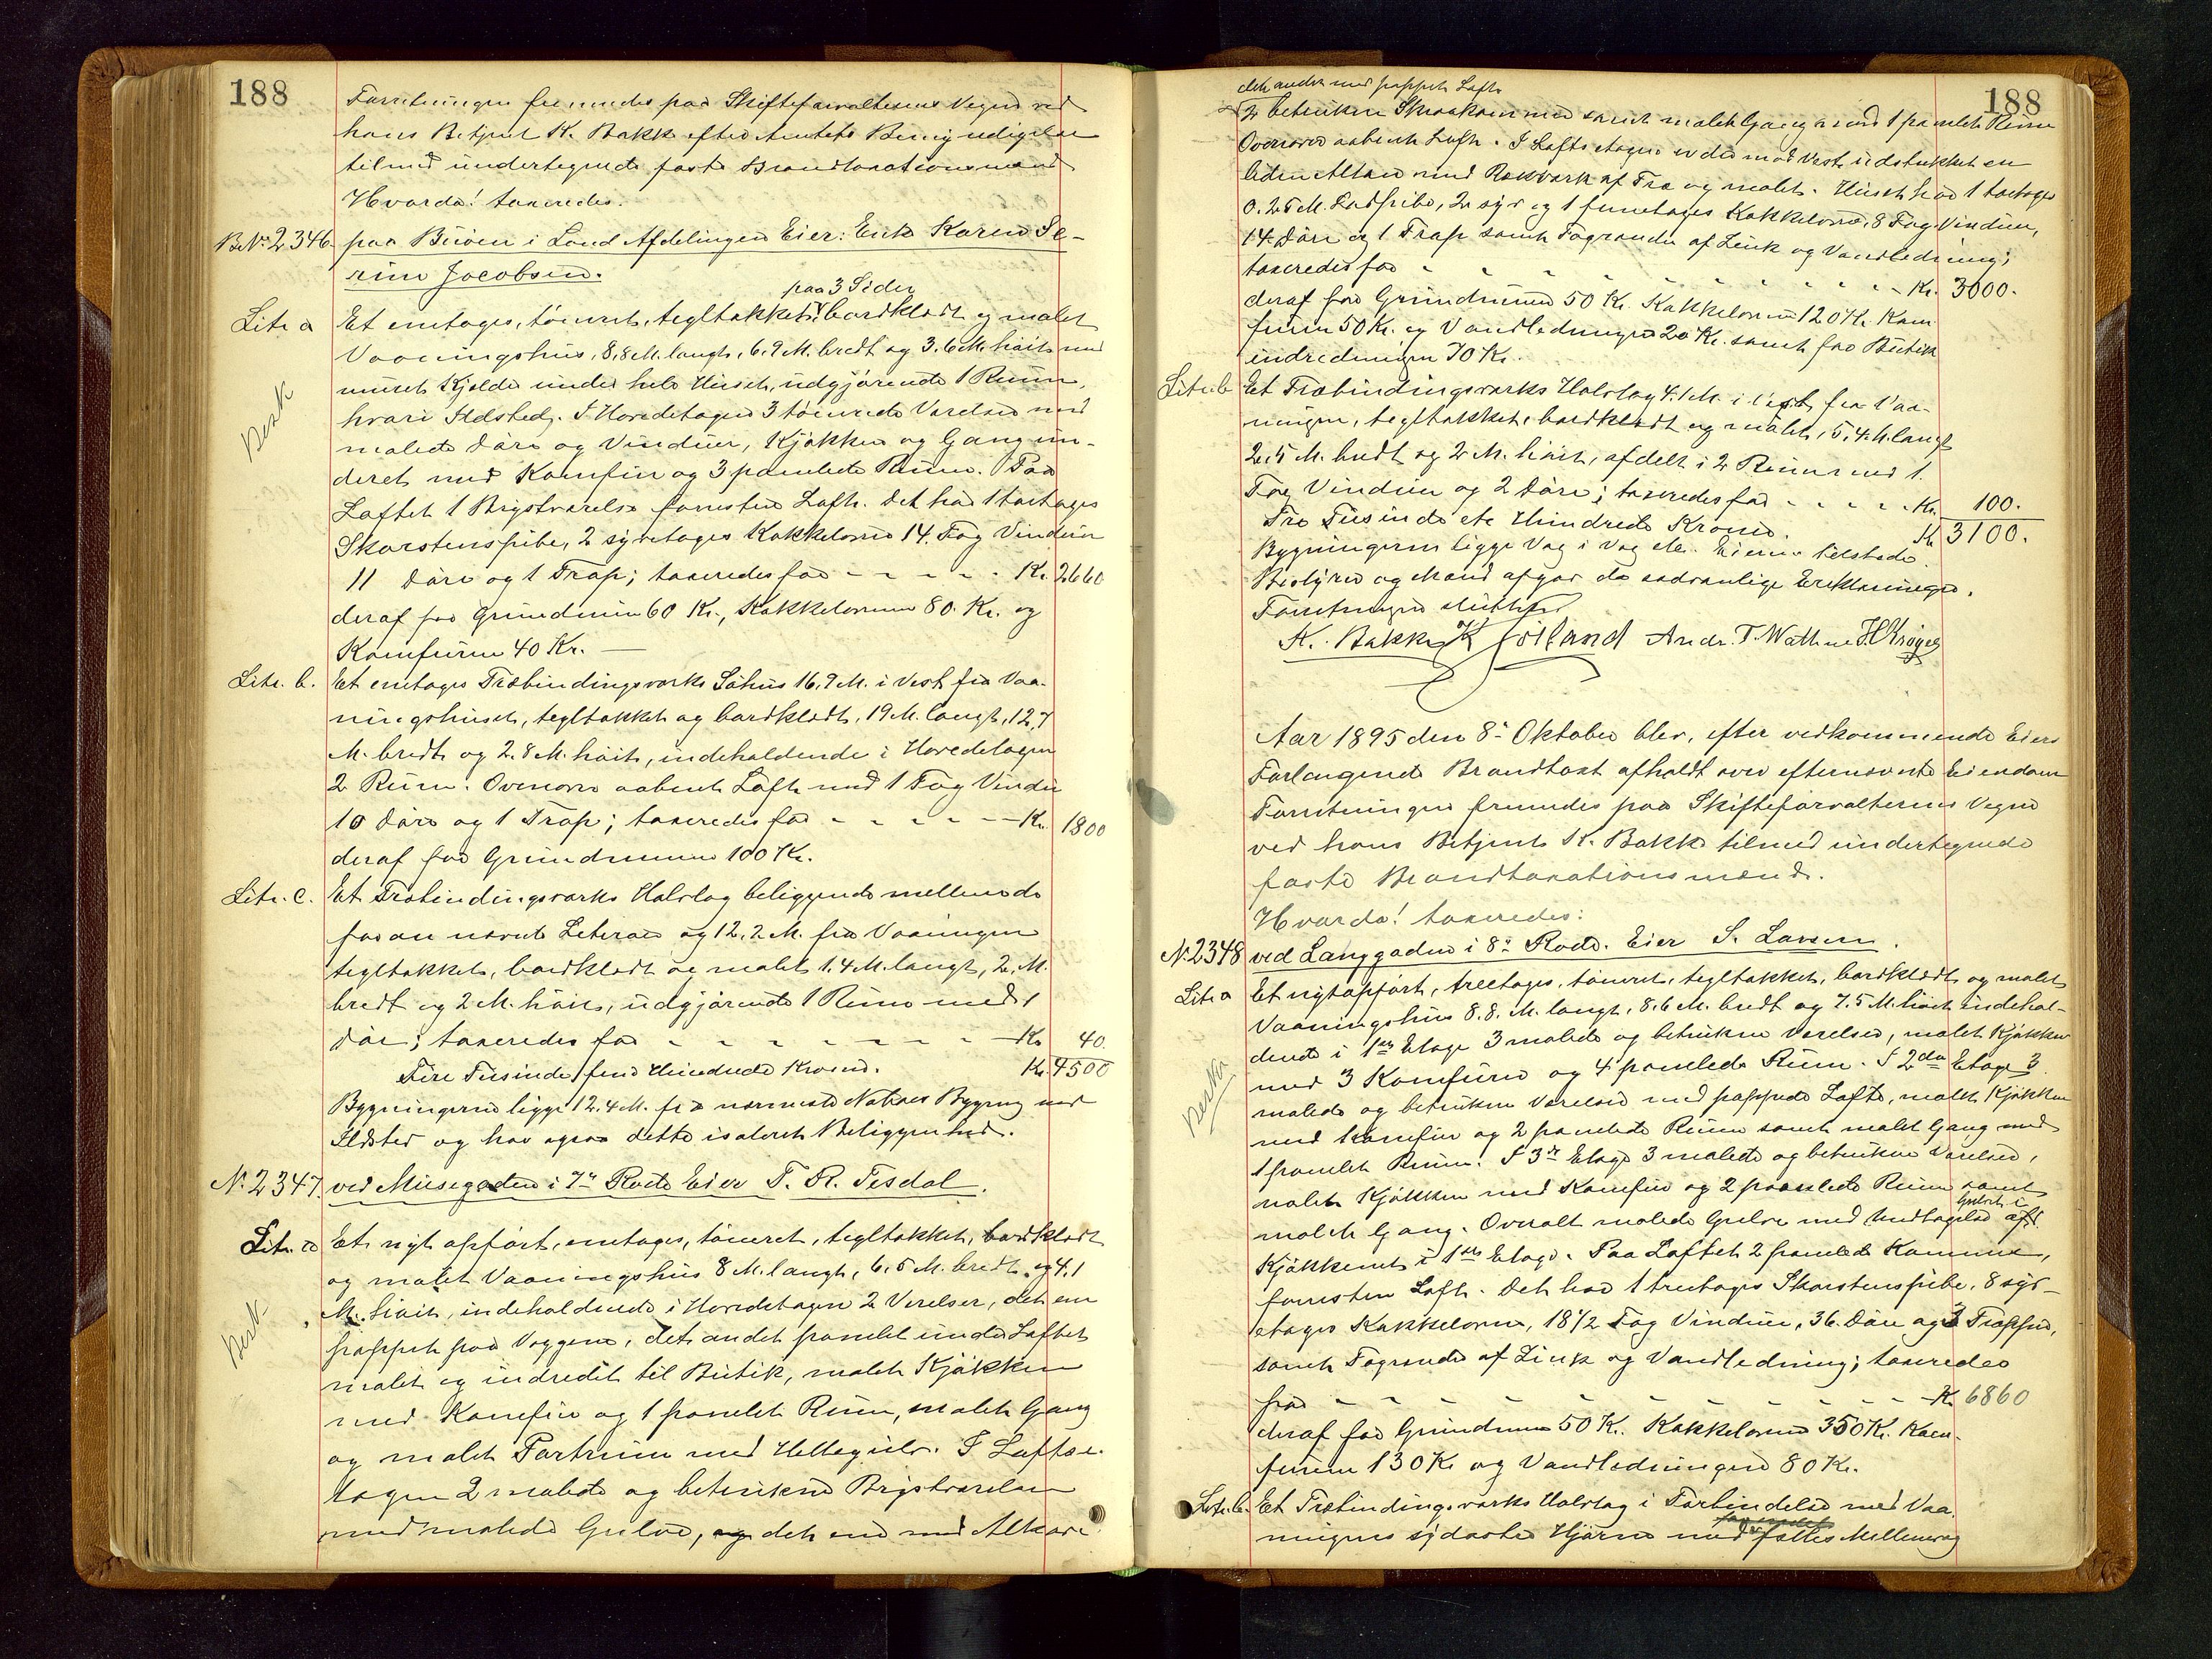 188
Forretningen fremmedes paa Skifteforvalterens Vegne ved
hans Betjent K. Bakk efter Amtets Bemyndigelse
tilmed undertegnede faste Brandtaxationsmænd
Hvorda! taxeredes.
B.No 2346 paa Buøen i Land Afdelingen Eier: Enke Karen Se-
rine Jacobsen.
paa 3 Sider
Litr a Et enetages, tømret, tegltækket, bordklædt og malet
Vaaningshus, 8,8 M. langt, 6,9 M. bredt og 3.6 M. høit med
muret Kjelder under hele Huset, udgjørende 1 Rum,
hvori Ildsted. I Hovedetagen 3 tømrede Værelser med
malede Døre og Vinduer, Kjøkken og Gang un-
deret med Komfur og 3 panelede Rum. Paa
Besk
Loftet 1 Brystværelse forresten Loft. Det har 1 toetages
Skorstenspibe, 2 syvetages Kakkelovne 14. Fag Vinduer
11 Døre og 1 Trap; taxeredes for - - - - - Kr. 2660
deraf for Grundmur 60 Kr., Kakkelovnene 80. Kr. og
Komfuren 40 Kr. —
Litr. b. Et enetages Træbindingsværks Søhus 16,9 M. i Vest fra Vaa-
ningshuset, tegltækket og bordklædt, 19 M. langt, 12,7
M. bredt og 2.8 M. høit, indeholdende i Hovedetagen
2 Rum. Ovenover aabent Loft med 1 Fag Vindu
10 Døre og 1 Trap; taxeredes for - - - - - Kr. 1800
deraf for Grundmuren 100 Kr.
Litr. c. Et Træbindingsværks Halvtag beliggende mellem de
foran nævnte Literaer og 12,2 M. fra Vaaningen
tegltækket, bordklædt og malet 1.4 M. langt, 2 M.
bredt og 2 M. høit, udgjørende 1 Rum med 1
Dør; taxeredes for - - - - - - - Kr 40.
Fire Tusinde fem Hundrede Kroner. Kr. 4500
Bygningerne ligge 12.4 M. fra nærmeste Naboes Bygning med
Ildsted og har ogsaa dette isoleret Beliggenhed.
No 2347. ved Musegaden i 7de Rode Eier T. R. Tesdal.
Litr. a Et nyt opført, enetages, tømret, tegltækket, bordklædt
og malet Vaaningshus 8 M. langt, 6,5 M. bredt og 4,1
M. høit, indeholdende i Hovedetagen 2 Værelser, det ene
Besk.
pappet paa Væggene, det andet panelet under Loftet
malet og indredet til Butik, malet Kjøkken
med Komfur og 1 panelet Rum, malet Gang
og malet Portrum med Hellegulv. I Loftse-
tagen 2 malede og betrukne Brystværelser
med malede Gulve, og det ene med Alkove
188
det andet med pappet Loft
2 betrukne Skraakamre samt malet Gang med 1 panelet Rum
Ovenover aabent Loft. I Loftsetagen er der mod Vest udstukket en
liden Altan med Rækværk af Træ og malet. Huset har 1 toetages
0.25 M. Lodpibe, 2 syv og 1 femetages Kakkelovne, 8 Fag Vinduer,
14. Døre og 1 Trap samt Tagrender af Zink og Vandledning;
taxeredes for - - - - - - - Kr. 3000.
deraf for Grundmuren 50 Kr. Kakkelovnene 120 Kr. Kom-
furen 50 Kr. og Vandledningen 20 Kr. samt for Butik
indredningen 70 Kr.
Litr. b Et Træbindingsværks Halvtag 4.1 M. i Vest fra Vaa-
ningen, tegltækket, bordklædt og malet, 5,4 M. langt
2,5 M. bredt og 2 M. høit, afdelt i 2 Rum med 1.
Fag Vinduer og 2 Døre; taxeredes for - - - - - Kr. 100.
Tre Tusinde et Hundrede Kroner. Kr 3100.
Bygningerne ligge Væg i Væg etc. Eieren tilstede.
Bestyrer og Mænd afgav de sædvanlige Erklæringer.
Forretningen sluttet
K. Bakk K Goiland Andr. T. Wathne H. Krøger
Aar 1895 den 8de Oktober blev, efter vedkommende Eiers
Forlangende Brandtaxt afholdt over efternævnte Eiendom
Forretningen fremmedes paa Skifteforvalterens Vegne
ved hans Betjent K. Bakk tilmed undertegnede
faste Brandtaxationsmænd.
Hvorda! taxeredes:
No 2348 ved Langgaden i 8de Rode. Eier S. Larsen.
Litr. a Et nytopført, treetages, tømret, tegltækket, bordklædt og malet
Vaaningshus 8.8. M. langt, 8,6 M. bredt og 7.5 M. høit indehol-
dende i 1ste Etage 3 malede og betrukne Værelser, malet Kjøkken
med 3 Komfurer og 4 panelede Rum. I 2den Etage 3
Besk
malede og betrukne Værelser med pappede Lofte, malet Kjøkken
med Komfur og 2 panelede Rum samt malet Gang med
1 panelet Rum. I 3de Etage 3 malede og betrukne Værelser,
malet Kjøkken med Komfur og 2 panelede Rum samt
malet Gang. Overalt malede Gulve med Undtagelse af
Gulvet i
Kjøkkenet i 1ste Etage. Paa Loftet 2 panelede Kammer,
forresten Loft. Det har 1 treetages Skorstenspibe, 8 syv-
etages Kakkelovne, 18 1/2 Fag Vinduer, 36. Døre og 3 Trapper,
samt Tagrender af Zink og Vandledning; taxeredes
for - - - - - - - - Kr. 6860
deraf for Grundmur 50 Kr. Kakkelovne 350 Kr. Kom-
furene 130 Kr og Vandledningen 80 Kr.
Litr. b. Et Træbindingsværks Halvtag i Forbindelse med Vaa-
ningens sydøstre Hjørne med fælles Mellemvæg